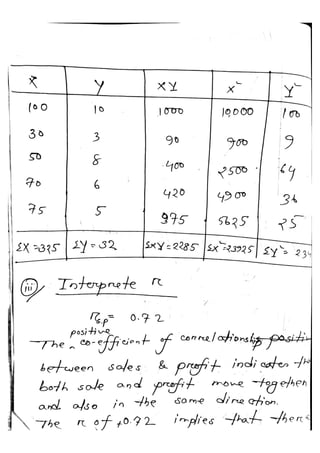 X Y XY X² Y²
100 10 1000 10,000 100
30 3 90 900 9
50 8 400 2500 64
70 6 420 4900 36
75 5 975 5625 25
ΣX=325 ΣY=32 ΣXY=2285 ΣX²=23925 ΣY²= 234
(iii) Interprete r
rs.p= 0.72
positive
The co-efficient of correlationship positiv
between sales & profit indicates the
both sale and profit move together
and also in the same direction.
The r of +0.72 implies that there